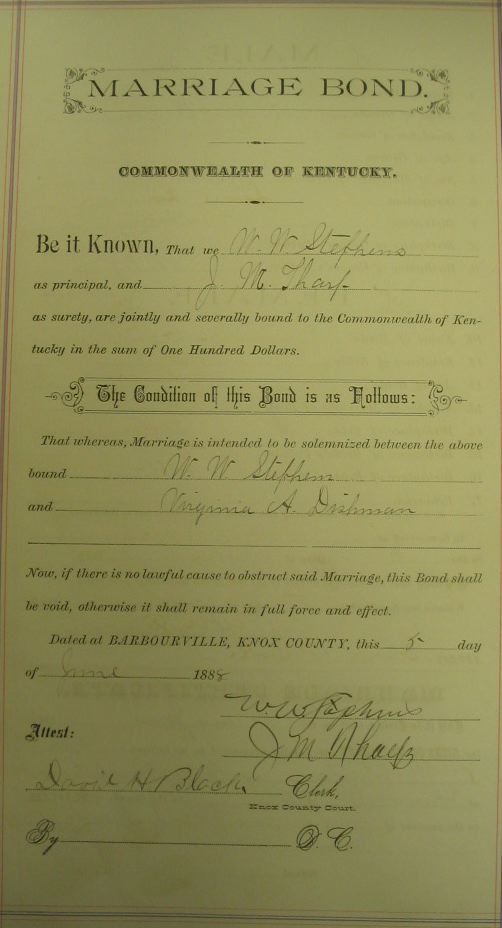 MARRIAGE BOND.
COMMONWEALTH OF KENTUCKY.
Be it Known, That we W. W. Stephens
as principal, and J. M. Tharp
as surety, are jointly and severally bound to the Commonwealth of Ken-
tucky in the sum of One Hundred Dollars.
The Condition of this Bond is as Follows:
That whereas, Marriage is intended to be solemnized between the above
bound W. W. Stephens
and Virginia A. Dishman
Now, if there is no lawful cause to obstruct said Marriage, this Bond shall
be void, otherwise it shall remain in full force and effect.
Dated at BARBOURVILLE, KNOX COUNTY, this 5 day
of June 1888
W W Stephens
Attest:
J M Tharp
David H Black, Clerk,
Knox County Court.
By D. C.